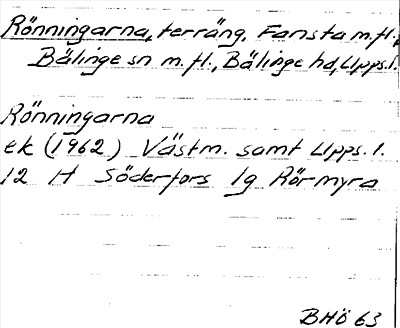 Rönningarna, terräng, Fansta m.fl.,
Bälinge sn m.fl., Bälinge hd, Upps.l.
Rönningarna
ek (1962) Västm. samt Upps. l.
12 H Söderfors 1g Rörmyra
BHÖ 63